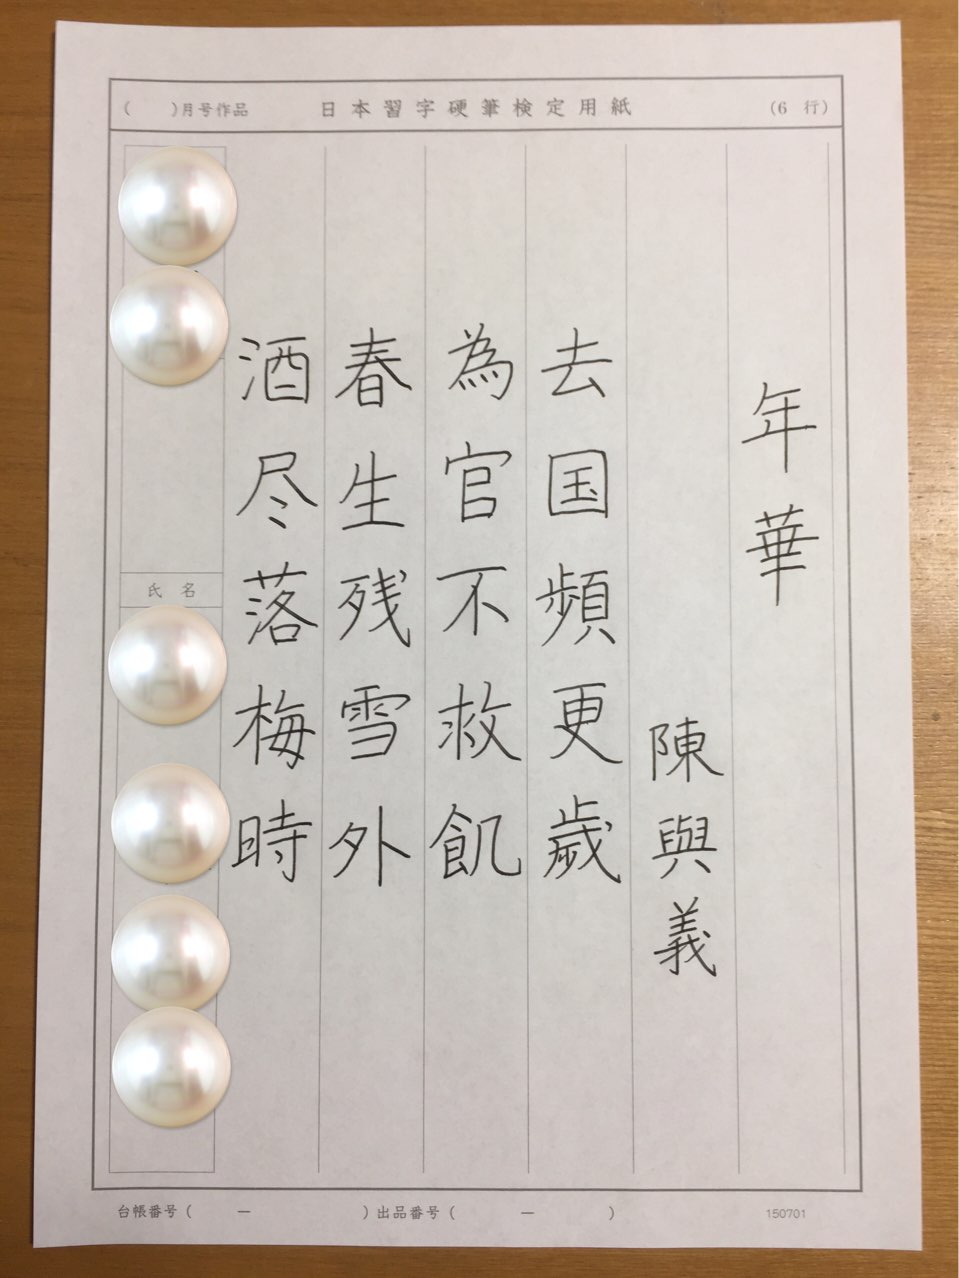 ( )月号作品 日本習字硬筆検定用紙 (6 行)
年華
陳與義
去国頻更歳
為官不救飢
春生残雪外
酒尽落梅時
氏名
台帳番号( ー ) 出品番号( ー ) 150701